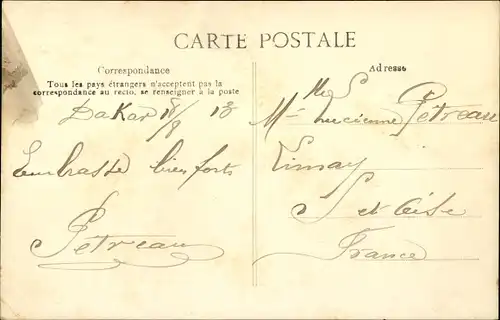 CARTE POSTALE
Correspondance
Tous les pays étrangers n'acceptent pas la
correspondance au recto, se renseigner à la poste
Dakar 18/8 13
Embrasse bien forts
Pétreau
Adresse
Mlle Lucienne Pétreau
Limay
S et Oise
France